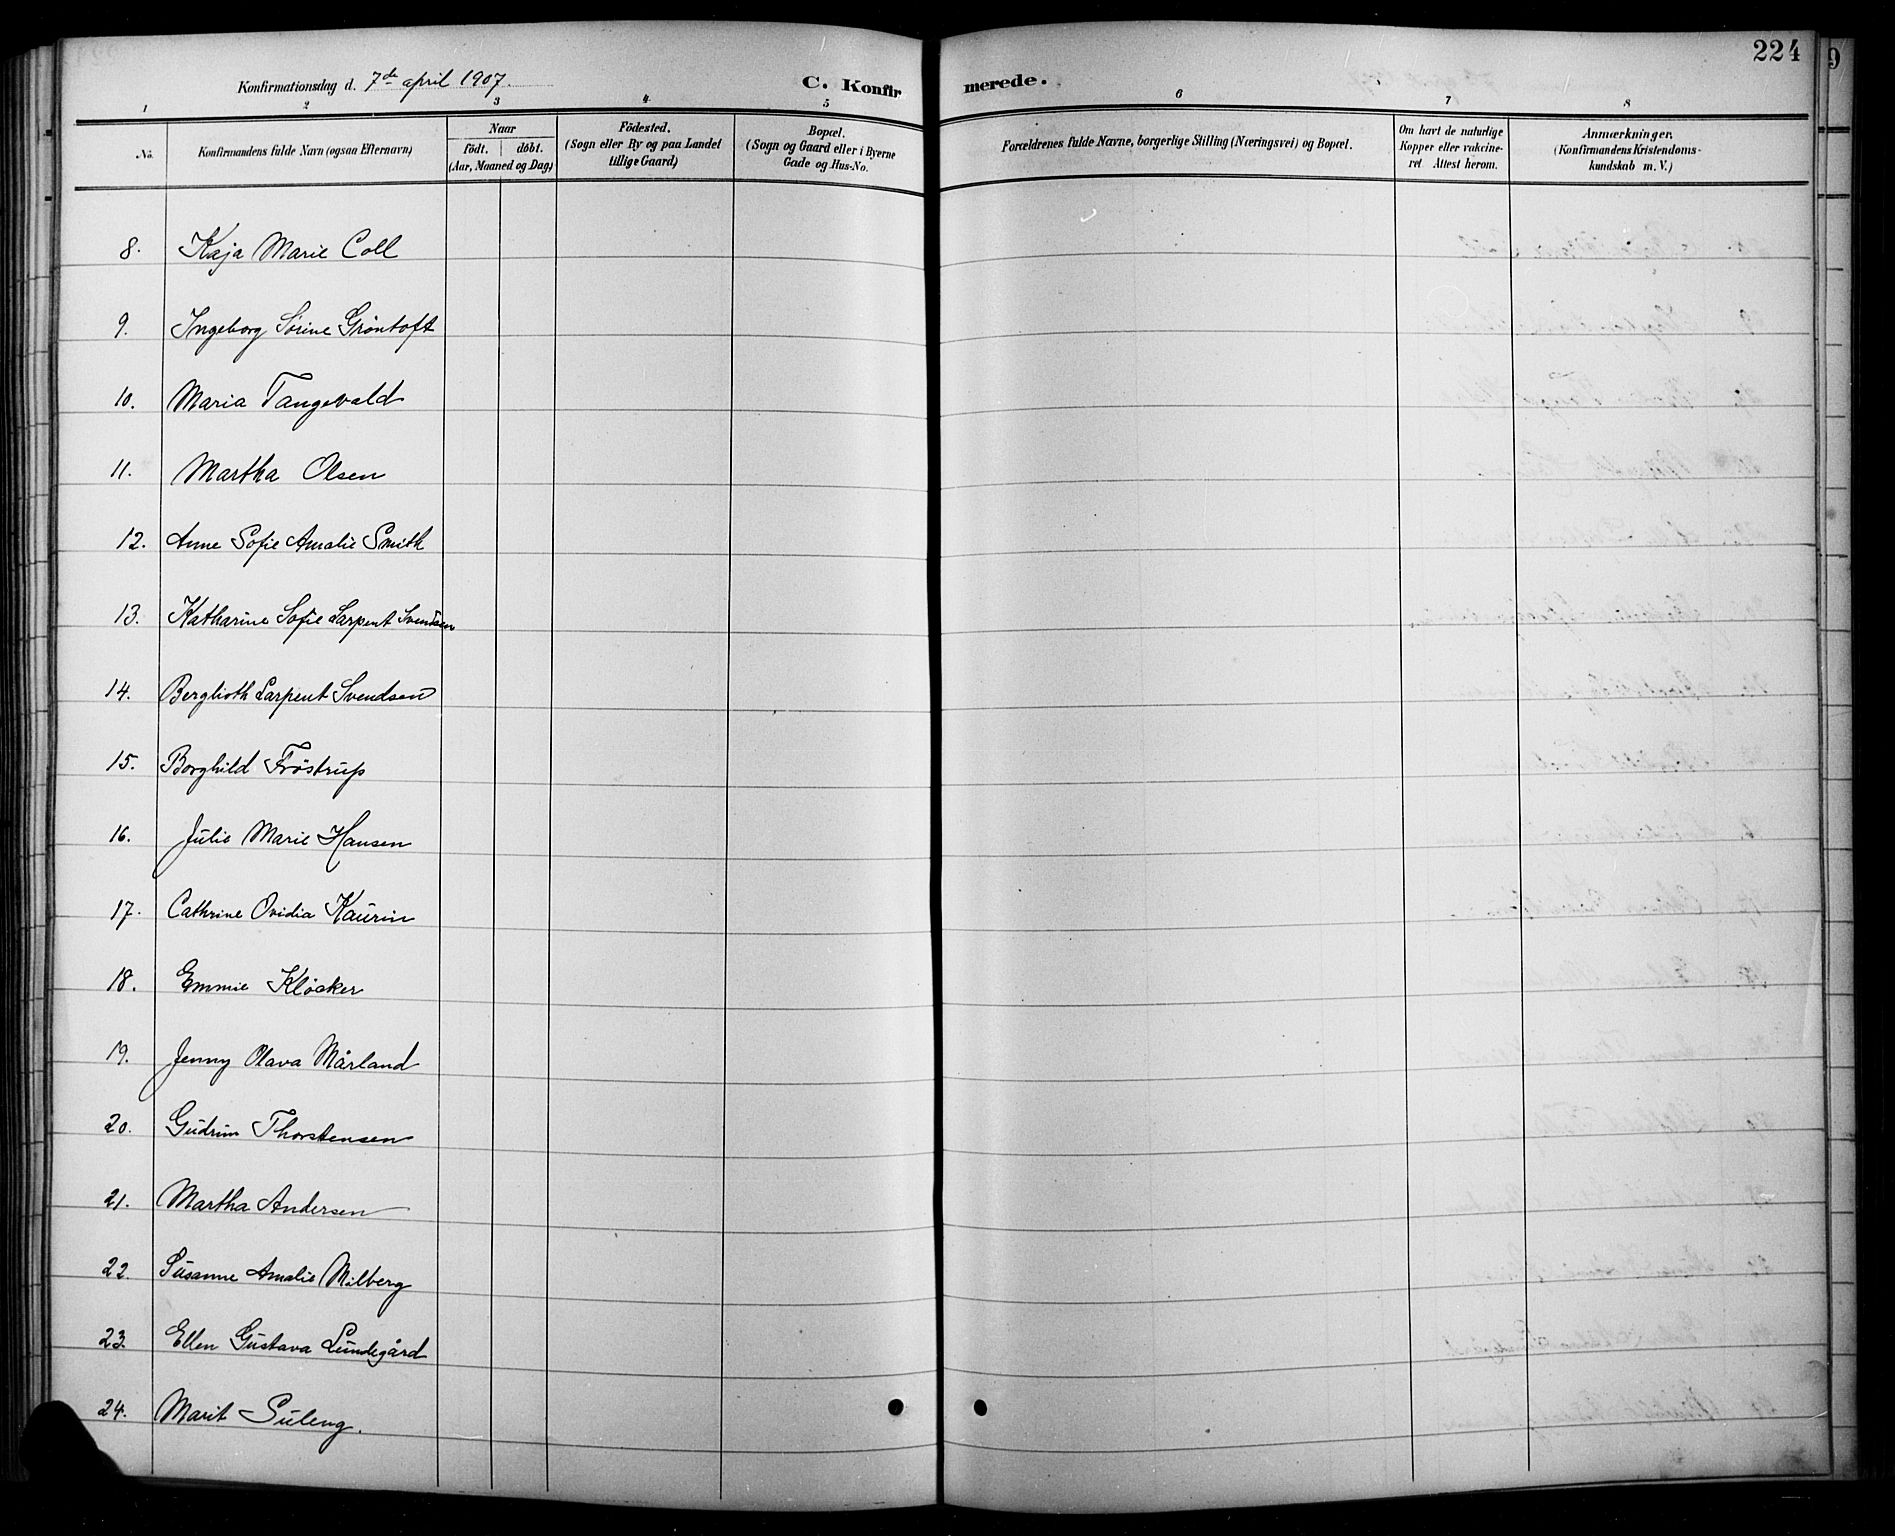 224
9
Konfirmationsdag d. 7de april 1907.
C. Konfirmerede.
1 2 3 4 5 6 7 8
No.
Konfirmandens fulde Navn (ogsaa Efternavn)
Naar
Födt. döbt.
(Aar, Maaned og Dag)
Födested.
(Sogn eller By og paa Landet
tillige Gaard)
Bopæl.
(Sogn og Gaard eller i Byerne
Gade og Hus-No.
Forældrenes fulde Navne, borgerlige Stilling (Næringsvei) og Bopæl.
Om havt de naturlige
Kopper eller vakcine-
ret Attest herom.
Anmærkninger.
(Konfirmandens Kristendoms-
kundskab m. V.)
8. Kaja Marie Coll
9. Ingeborg Sörine Gröntoft
10. Maria Tangevald
11. Martha Olsen
12. Anne Sofie Amalie Smith
13. Katharine Sofie Larpent Svendsen
14. Berglioth Larpent Svendsen
15. Borghild Fröstrup
16. Julie Marie Hansen
17. Cathrine Ovidia Kaurin
18. Emmie Klöcker
19. Jenny Olava Mårland
20. Gudrun Thorstensen
21. Martha Andersen
22. Susanne Amalie Milberg
23. Ellen Gustava Lundegård
24. Marit Suleng.